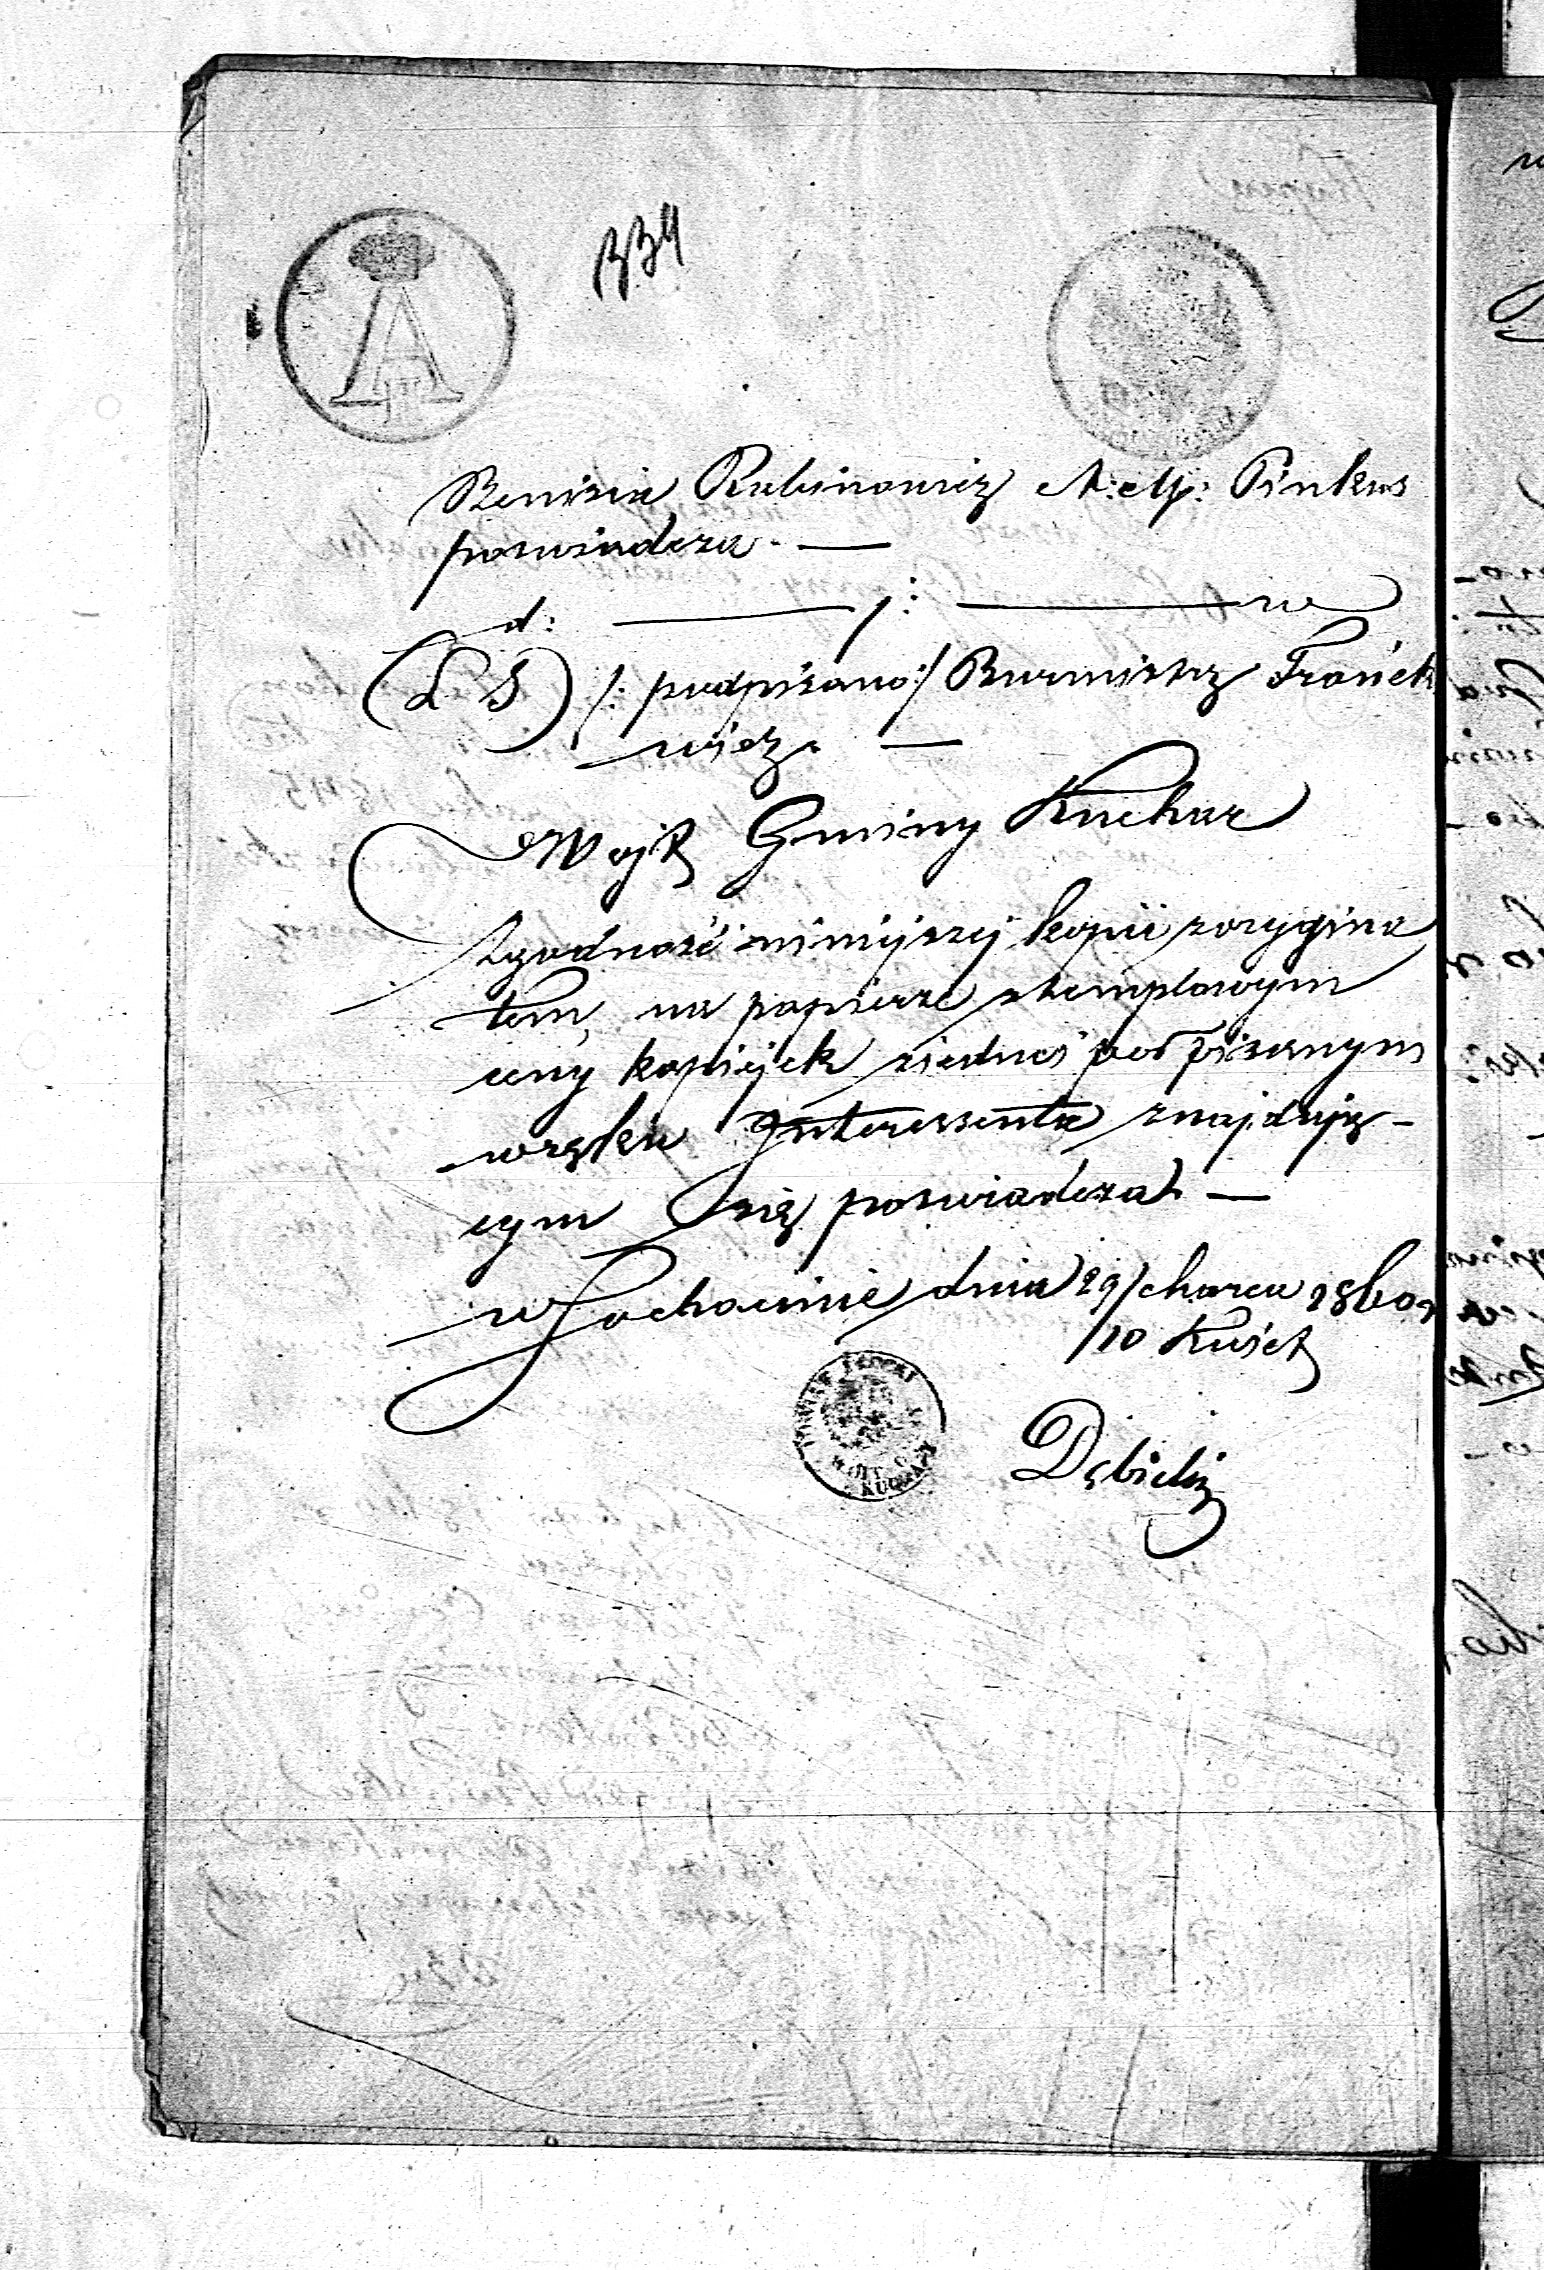 334
Rubinowicz Pinkus
poswiadcza. —
d: — /: — w
(L S) /: podpisano :/ Burmistrz Franck
wicz. —
Wojt Gminy Kuchar
Zgodność niniejszej kopii z orygina
łem, na papierze stemplowym
ceny kopiejek siedmś pod pisanym
w ręku Interessenta znajdują-
cym się poswiadcza —
w Jochowinie dnia 29/ Marca 1860
10 Kwiet
Dębicki